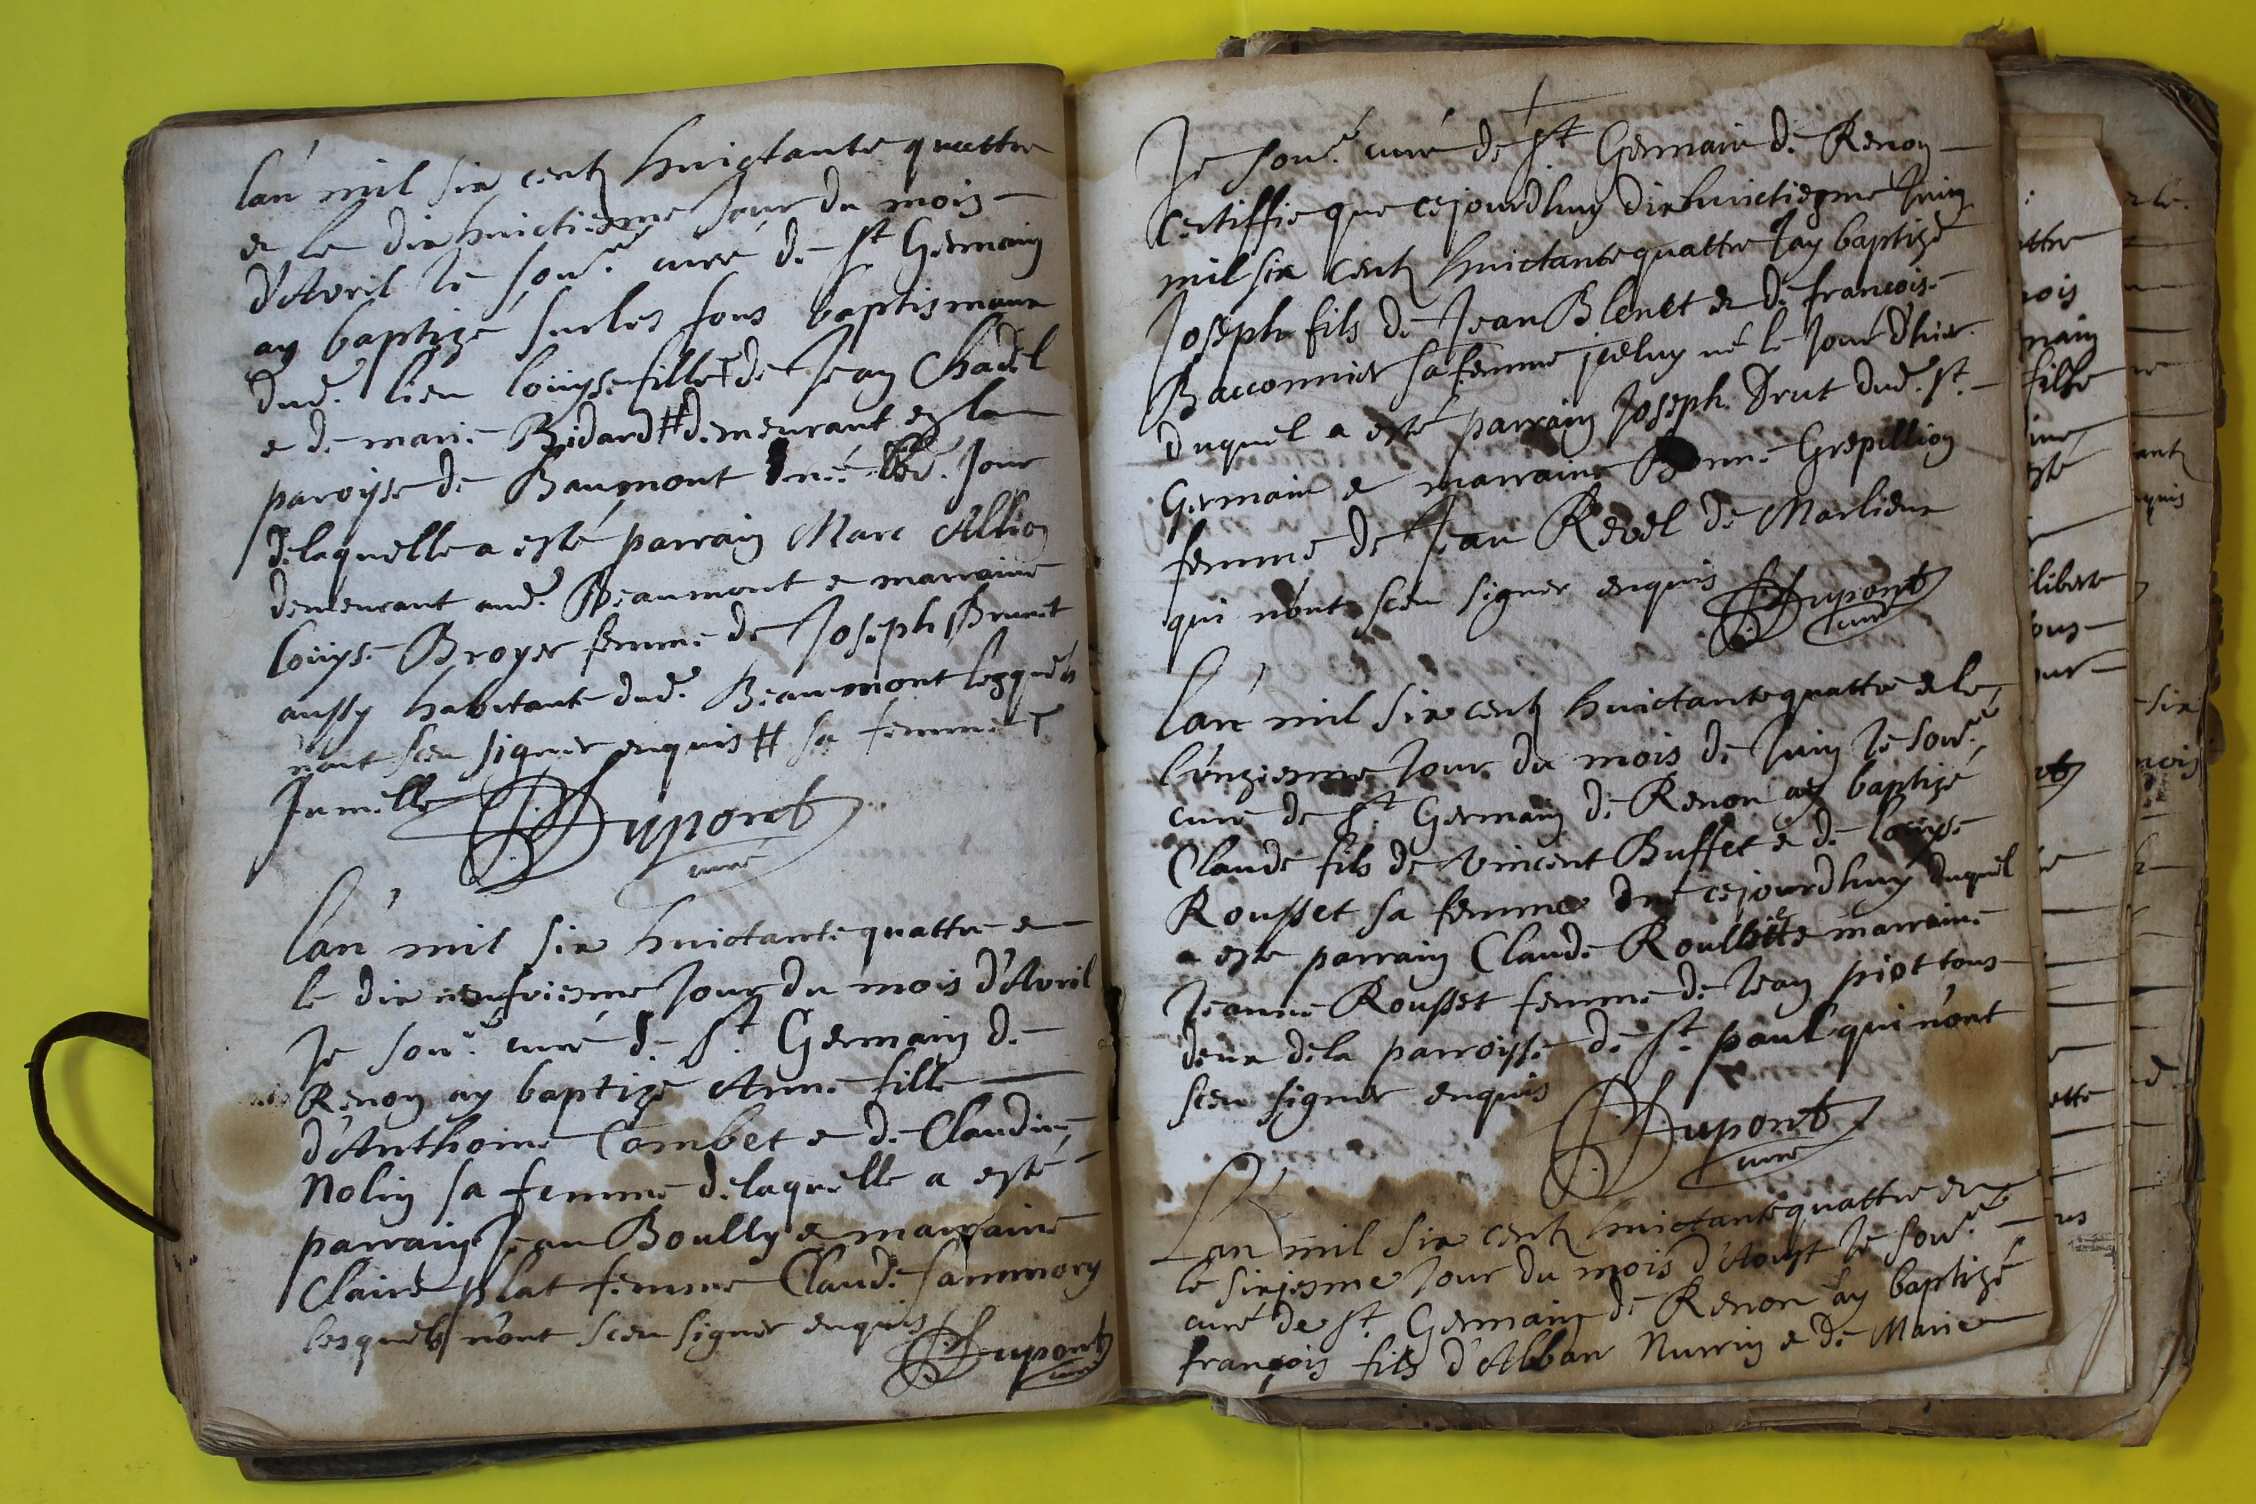 lan mil six centz huictante quattre
& le dix huictiesme Jour du mois
d'Avril Je sou.né curé de St Germain
ay baptizé surles fons baptismaux
dud. lieu loüyse fille de Jean Chadel
& de marie Bidard # demeurant en la
paroisse de Beaumont née led. Jour
delaquelle a esté parrain Marc Allion
demeurant aud. Beaumont & marraine
loüyse Broyer femme de Joseph Brunet
aussy habitante dud. Beaumont lesquels
n'ont sceu signer enquis # sa femme
Jumelle Dupont
curé
lan mil six huictante quattre &
le dix neufviesme Jour du mois d'Avril
Je sou.né curé de St Germain de
Renon ay baptizé Anne fille
d'Anthoine Combet & de Claudine
Nolin sa femme delaquelle a esté
parrain Jean Boully & marraine
Claire plat femme Claude Sammory
lesquels n'ont sceu signer enquis Dupont
curé
Je sou.né curé de St Germain de Renon
Certiffie que cejourdhuy dixhuictiesme Juin
mil six centz huictante quattre Jay baptizé
Joseph fils de Jean Blenet & de francoise
Bacconnier sa femme Jceluy né le Jour d'hier
duquel a esté parrain Joseph Drut dud. St
Germain & marraine Bonne Grepillion
femme de Jean Revel de Marlieux
qui n'ont sceu signer enquis Dupont
curé
lan mil six centz huictante quattre & le
unziesme Jour du mois de Juin Je sou.né
curé de St Germain de Renon ay baptizé
Claude fils de Vincent Buffet & de loüyse
Rousset sa femme né cejourdhuy duquel
a esté parrain Claude & marraine
Jeanne Rousset femme de Jean piot tous
deux dela parroisse de St paul qui n'ont
sceu signer enquis Dupont
curé
Lan mil six centz huictante quattre &
le sixiesme Jour du mois d'Aoust Je sou.né
curé de St Germain de Renon ay baptizé
françois fils d'Abban Nurrin & de Marie